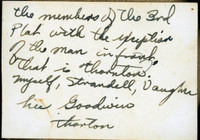 the members of the 3rd
Plat with the exception
of the man in front,
that is thornton.
myself, Strandell, Vaughn
her Goodwin
thorton